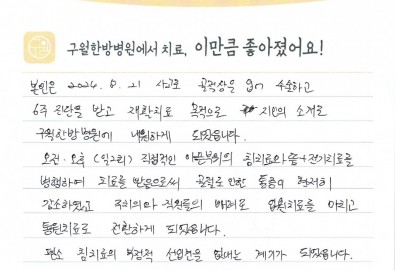 구월한방병원에서 치료, 이만큼 좋아졌어요!
본인은 2024. 8. 21 사고로 골절상을 입어 수술하고
6주 진단을 받고 재활치료 목적으로 지인의 소개로
구월한방병원에 내원하게 되었습니다.
오전·오후 (일2회) 직접적인 아픈부위의 침치료와 + 전기치료를
병행하여 치료를 받음으로써 골절로 인한 통증이 현저히
감소하였고 주치의와 직원들의 배려로 입원치료를 마치고
통원치료로 전환하게 되었습니다.
평소 침치료의 부정적 선입견을 없애는 계기가 되었습니다.